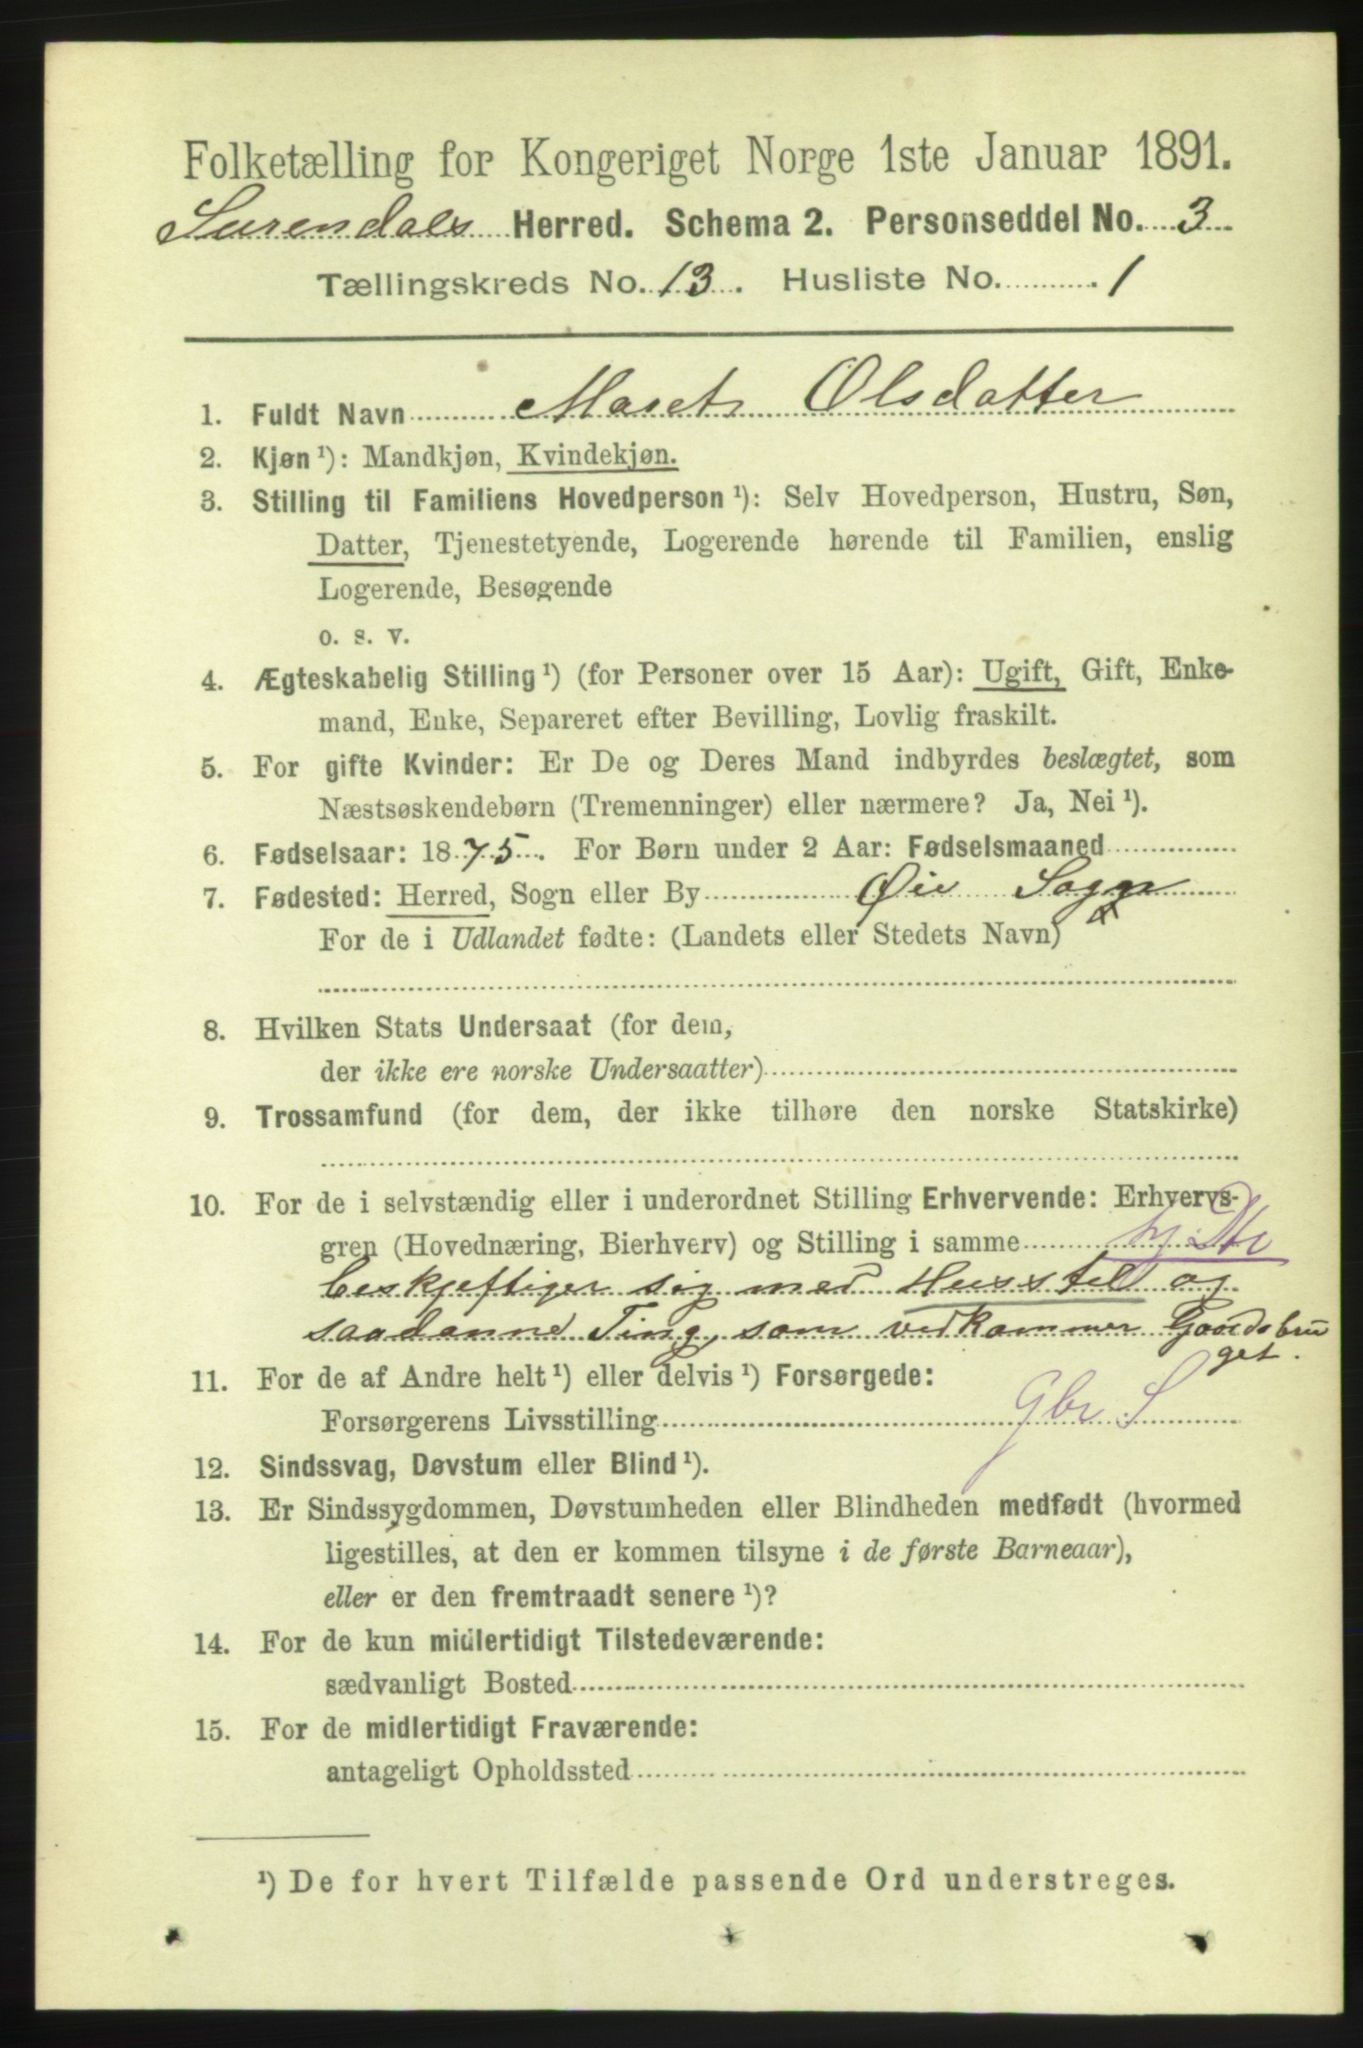 Folketælling for Kongeriget Norge 1ste Januar 1891.
Surendals Herred. Schema 2. Personseddel No. 3
Tællingskreds No. 13. Husliste No. 1
1. Fuldt Navn Maret Olsdatter
2. Kjøn ¹): Mandkjøn, Kvindekjøn.
3. Stilling til Familiens Hovedperson ¹): Selv Hovedperson, Hustru, Søn,
Datter, Tjenestetyende, Logerende hørende til Familien, enslig
Logerende, Besøgende
o. s. v.
4. Ægteskabelig Stilling ¹) (for Personer over 15 Aar): Ugift, Gift, Enke-
mand, Enke, Separeret efter Bevilling, Lovlig fraskilt.
5. For gifte Kvinder: Er De og Deres Mand indbyrdes beslægtet, som
Næstsøskendebørn (Tremenninger) eller nærmere? Ja, Nei ¹).
6. Fødselsaar: 1875. For Børn under 2 Aar: Fødselsmaaned
7. Fødested: Herred, Sogn eller By Øie Sogn
For de i Udlandet fødte: (Landets eller Stedets Navn)
8. Hvilken Stats Undersaat (for dem,
der ikke ere norske Undersaatter)
9. Trossamfund (for dem, der ikke tilhøre den norske Statskirke)
10. For de i selvstændig eller i underordnet Stilling Erhvervende: Erhvervs-
gren (Hovednæring, Bierhverv) og Stilling i samme hj. Dtr
beskjeftiger sig med Husstel og
saadanne Ting, som vedkommer Gaardsbru
get.
11. For de af Andre helt ¹) eller delvis ¹) Forsørgede:
Forsørgerens Livsstilling Gbr S
12. Sindssvag, Døvstum eller Blind ¹).
13. Er Sindssygdommen, Døvstumheden eller Blindheden medfødt (hvormed
ligestilles, at den er kommen tilsyne i de første Barneaar),
eller er den fremtraadt senere ¹)?
14. For de kun midlertidigt Tilstedeværende:
sædvanligt Bosted
15. For de midlertidigt Fraværende:
antageligt Opholdssted
¹) De for hvert Tilfælde passende Ord understreges.